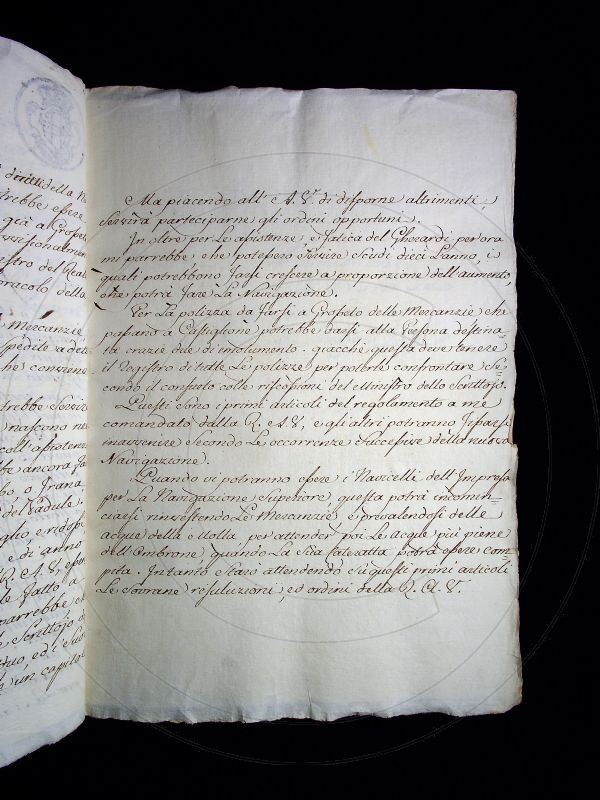 diritti della
trebbe essere
già a Grosseto
stro del Reale
Mercanzie
spedite a
trebbe
nascono
coll' assistenza
be ancora
bo, o Grana
del Padule
glio, e
e di anno
R. A. V.
le fatto a
parrebbe
e Scrittojo
un capitolo
Ma piacendo all' A. V. di disporne altrimenti,
servirà parteciparne gli ordini opportuni.
In oltre per le assistenze, e fatica del Gherardi per ora
mi parrebbe che potessero servire scudi dieci L'anno, i
quali potrebbono farsi crescere a proporzione dell' aumento,
che potrà fare La Navigazione.
Per La polizza da farsi a Grosseto delle Mercanzie che
passano a Castiglione potrebbe darsi alla Persona destina-
ta crazie due di emolumento. giacche questa deve tenere
il Registro di tutte Le polizze per poterle confrontare se-
condo il consueto colle riscossioni del Ministro dello Scrittojo.
Questi sono i primi articoli del regolamento a me
comandato dalla R. A. V., e gli altri potranno
in avvenire secondo Le occorrenze successive della nuova
Navigazione.
Quando vi potranno essere i Navicelli dell' Impresa
per La Navigazione superiore, questa potrà incomin-
ciarsi rinvestendo Le Mercanzie, e prevalendosi delle
acque della Molla, per attender poi Le acque più piene
dell' Ombrone, quando La sua cateratta potrà essere com
pita. Intanto starò attendendo su questi primi articoli
Le Sovrane resoluzioni, ed ordini della R. A. V.